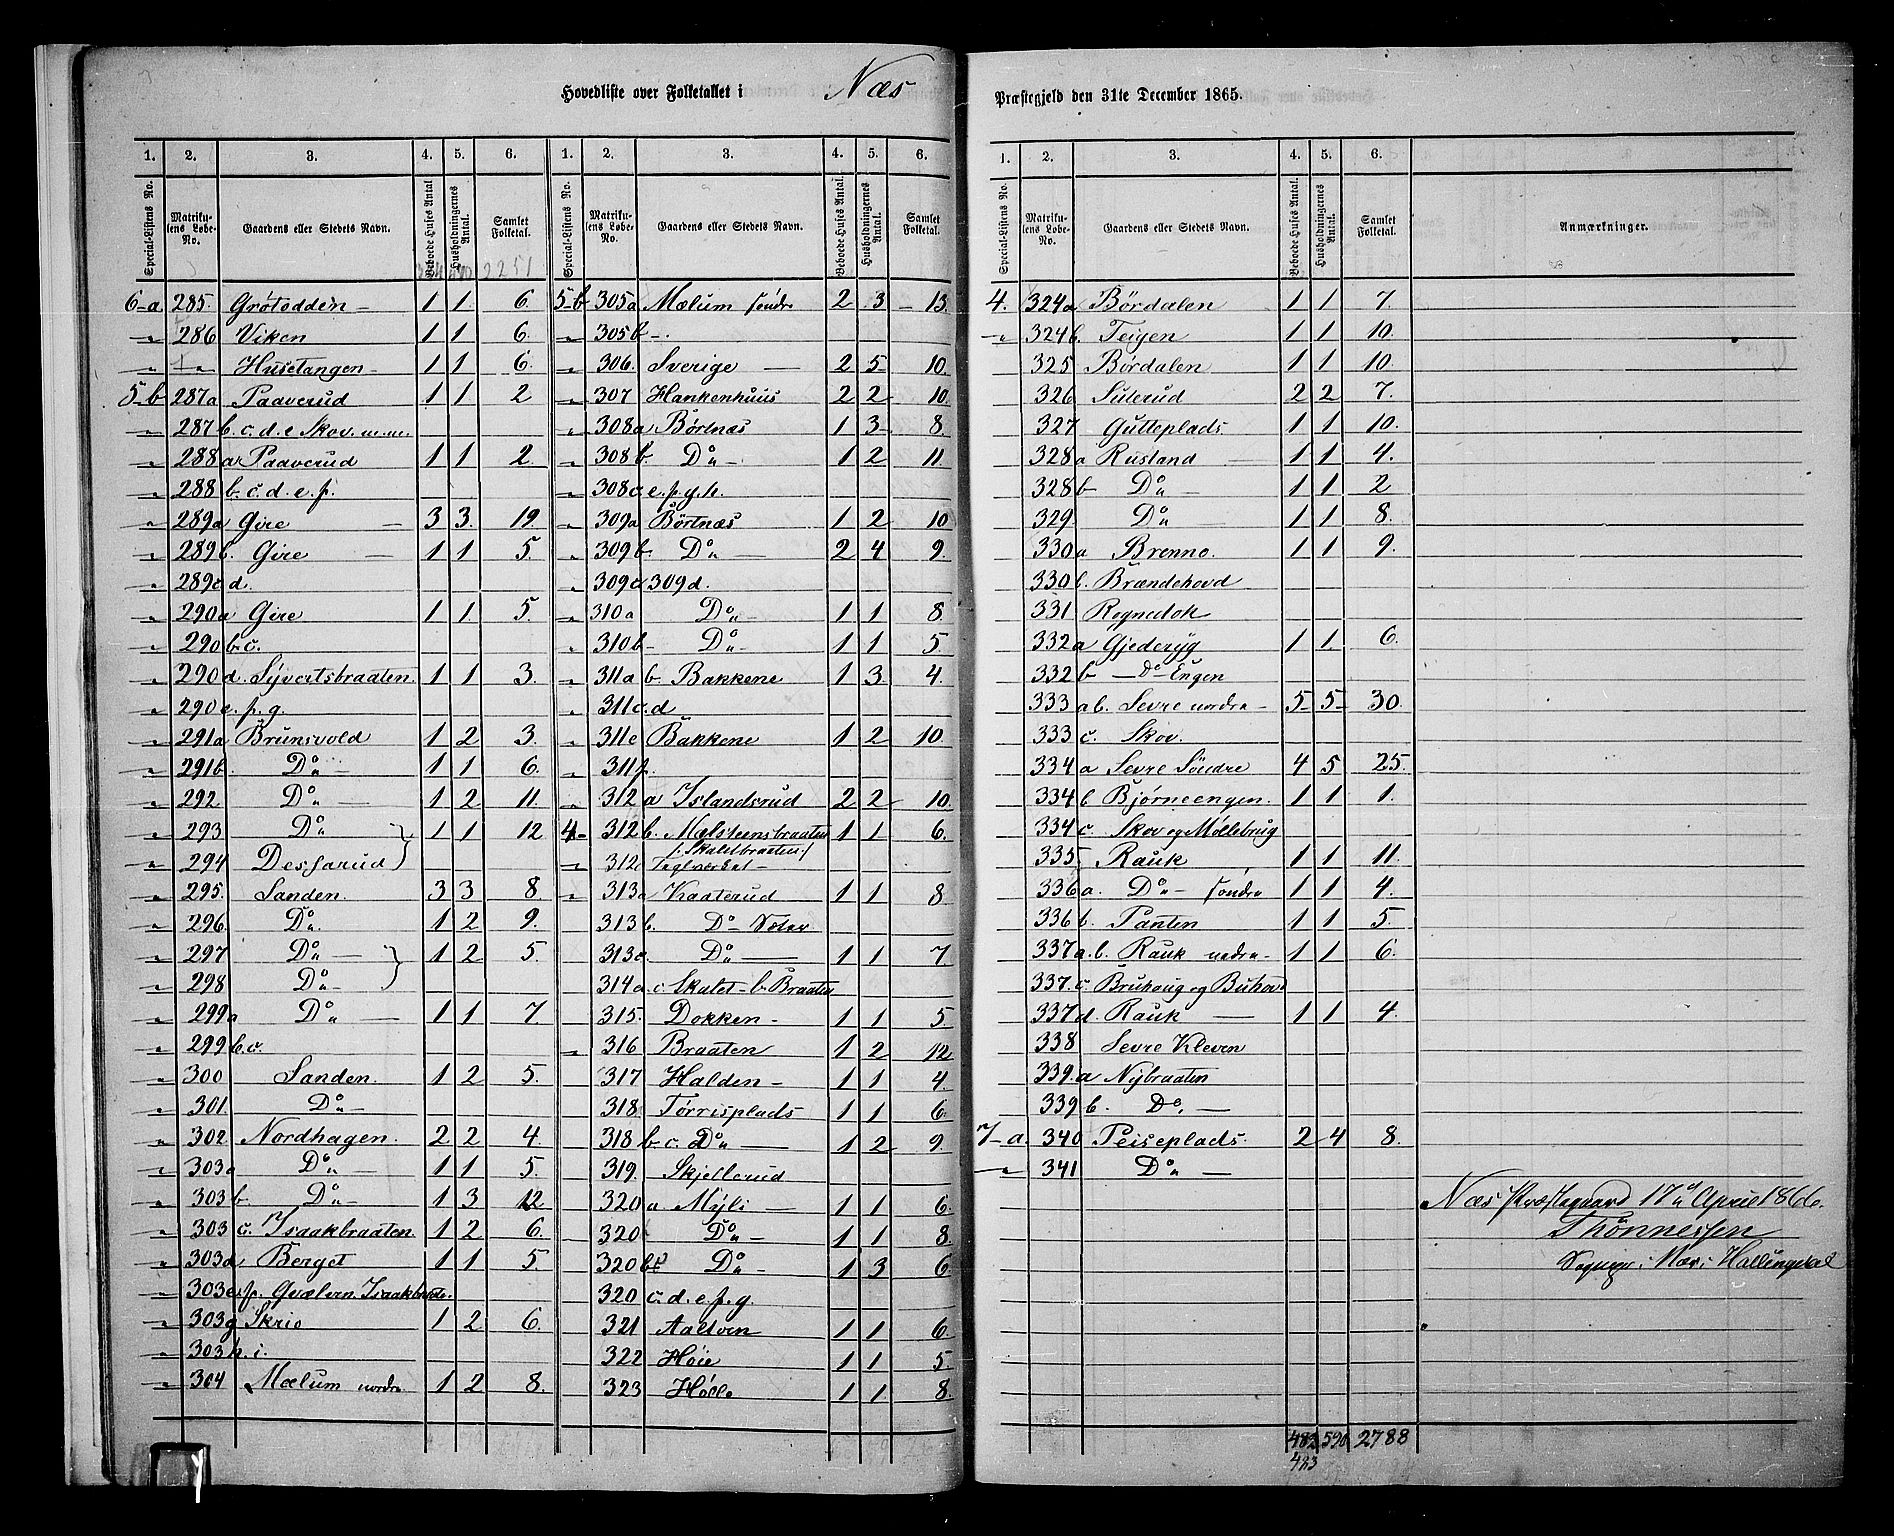 Hovedliste over Folketallet i Næs Præstegjeld den 31te December 1865.
1. 2. 3. 4. 5. 6.
Special-Listens No. Matrikulens Løbe-No. Gaardens eller Stedets Navn. Beboede Huses Antal. Husholdningernes Antal. Samlet Folketal.
2251
6-a 285 Grøtodden - 1 1 6.
" 286 Viken 1 1 6.
" " Husetangen - 1 1 6.
5-b 287a Paaverud 1 1 2
" 287 b.c.d.e Skov. m.m.
" 288 a Paaverud 1 1 2.
" 288 b.c.d.e.f.
" 289a Gire - 3 3. 19.
" 289 b. Gire - 1 1 5.
" 289c d.
" 290a Gire 1 1 5.
" 290 b c.
" 290 d. Syvertsbraaten. 1 1 3.
" 290 e. f. g.
" 291a Brunsvold 1 2 3.
" 291b. Do - 1 1 6.
" 292 Do - 1 2 11.
" 293 Do 1 1 12
" 294 Dessarud
" 295. Sanden. 3 3 8.
" 296. Do. 1 2 9.
" 297 Do - 1 2 5
" 298 Do -
" 299a Do - 1 1 7.
" 299 b.c.
" 300 Sanden. 1 2 5.
" 301. Do -
" 302. Nordhagen. 2 2 4.
" 303a Do - 1 1 5.
" 303 b. Do - 1 3 12.
" 303 c. Isaakbraaten. 1 2 6.
" 303d Berget 1 1 5.
303e f. Qvælven. Isaakbraate.
" 303g Skrio 1 2 6.
" 303 h. i.
" 304 Mælum nordre 1 2 8.
1. 2. 3. 4. 5. 6.
Special-Listens No. Matrikulens Løbe-No. Gaardens eller Stedets Navn. Beboede Huses Antal. Husholdningernes Antal. Samlet Folketal.
5-b 305a Mælum søndre 2 3 - 13.
" 305 b -.
" 306. Sverige - 2 5 10.
" 307 Hankenhuus 2 2 10.
" 308a Børtnæs 1 3 8
" 308 b. Do - 1 2 11.
" 308c. e. f. g. h.
" 309a Børtnæs 1 2 10
" 309 b. Do - 2 4 9.
" 309c 309 d.
" 310 a Do - 1 1 8.
" 310 b - Do - 1 1 5
" 311a b Bakkene 1 3 4.
" 311 c.d
" 311e Bakkene 1 2 10.
" 311 f.
" 312 a Islandsrud 2 2 10
4- 312 b. Mælsteensbraaten 1 1 6.
/: Skaletbraaten :/
" 312 Teglværket -
" 313a Kaaterud 1 1 8
313 b. Do - Sæter.
313c. Do - 1 1 7
314 a.c Skalet - b Braaten
315. Dokken - 1 1 5.
" 316 Braaten 1 2 12
317 Halden - 1 1 4.
318. Torrisplads 1 1 6.
318 b c. Do 1 2 9.
319. Skjellerud
320 a Myli - 1 1 6.
320 Do - 1 1 8.
320 b Do - 1 3 6.
320 c. d. e. f. g.
321 Aalsven 1 1 6.
322 Høie 1 1 5.
323 Hølle 1 1 8.
1. 2. 3. 4. 5. 6.
Special-Listens No. Matrikulens Løbe-No. Gaardens eller Stedets Navn. Beboede Huses Antal. Husholdningernes Antal. Samlet Folketal. Anmærkninger.
4. 324a Børdalen 1 1 7.
" 324 b. Teigen 1 1 10.
325 Børdalen 1 1 10.
326 Siterud 2 2 7.
327 Gutteplads 1 1 10.
328 a Rusland - 1 1 4.
328 b Do - 1 1 2
329. Do - 1 1 8.
330 a Brenno. 1 1 9.
330 b. Brændehovd
331 Rognedok
332 a Gjederyg 1 1. 6.
332 b - Do - Engen
333 a b. Sevre nordre - 5 5 30.
333 c. Skov.
334 a Sevre Søndre 4 5 25.
334 b Bjørneengen. 1 1 1.
334 c. Skov og Møllebrug
335 Rauk 1 1 11.
336 a. Do - søndre 1 1 4.
336 b. Panten 1 1 5.
337 a.b. Rauk nedre - 1 1 6.
337. c Bruhoug og Buhovd
337 d. Rauk - 1 1 4.
338 Sevre Kleven
339. a Nybraaten
339 b. Do. -
7-a. 340 Peiseplads. 2 4 8.
" 341 Do -
Næs Præstegaard 17de April 1866.
Thönnessen
Sognepr. i Næs i Hallingdal
482 590 2788
483